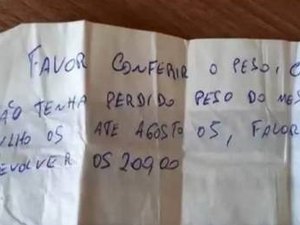 FAVOR CONFERIR O PESO, C
ÃO TENHA PERDIDO PESO DO MES
ULHO 05 ATE AGOSTO 05, FAVOR
EVOLVER OS 209,00